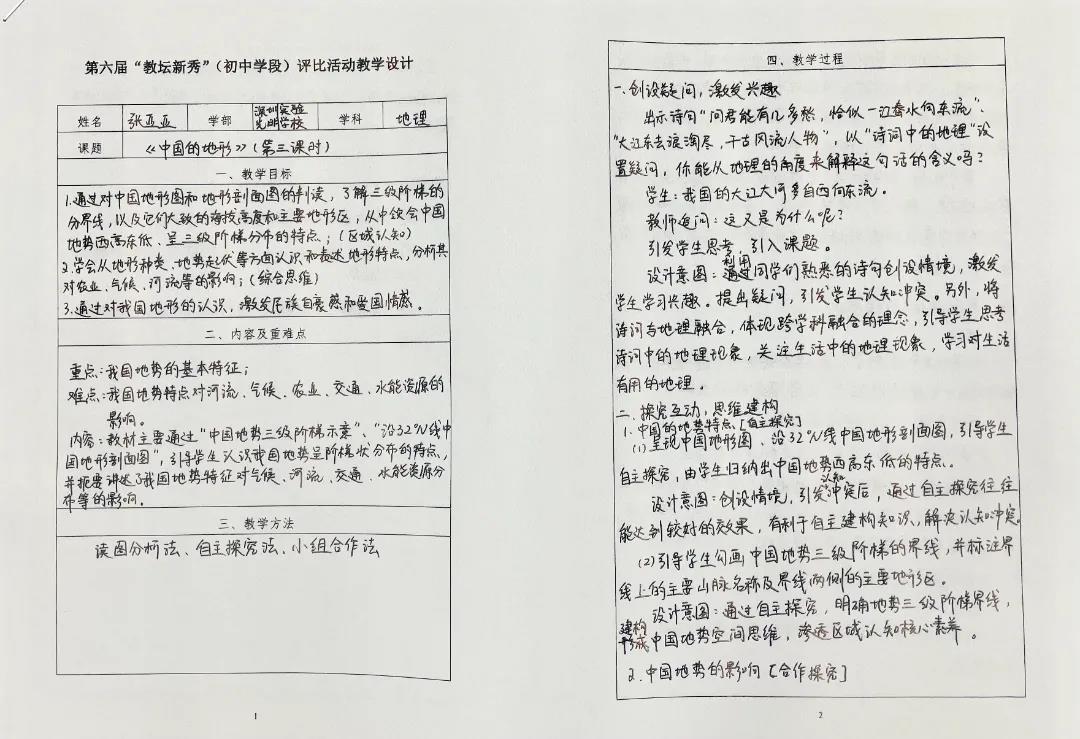 第六届“教坛新秀”（初中学段）评比活动教学设计
姓名 张亚亚 学部 深圳实验光明学校 学科 地理
课题 《中国的地形》（第三课时）
一、教学目标
1.通过对中国地形图和地形剖面图的判读，了解三级阶梯的
分界线，以及它们大致的海拔高度和主要地形区，从中领会中国
地势西高东低、呈三级阶梯分布的特点；（区域认知）
2.学会从地形种类、地势起伏等方面认识和表述地形特点，分析其
对农业、气候、河流等的影响；（综合思维）
3.通过对我国地形的认识，激发民族自豪感和爱国情感。
二、内容及重难点
重点：我国地势的基本特征；
难点：我国地势特点对河流、气候、农业、交通、水能资源的
影响。
内容：教材主要通过“中国地势三级阶梯示意”、“沿32°N线中
国地形剖面图”，引导学生认识我国地势呈阶梯状分布的特点，
并扼要讲述了我国地势特征对气候、河流、交通、水能资源分
布等的影响。
三、教学方法
读图分析法、自主探究法、小组合作法
1
四、教学过程
一.创设疑问，激发兴趣
出示诗句“问君能有几多愁，恰似一江春水向东流”、
“大江东去浪淘尽，千古风流人物”，以“诗词中的地理”设
置疑问，你能从地理的角度来解释这句话的含义吗？
学生：我国的大江大河多自西向东流。
教师追问：这又是为什么呢？
引发学生思考，引入课题。
利用
设计意图：通过同学们熟悉的诗句创设情境，激发
学生学习兴趣。提出疑问，引发学生认知冲突。另外，将
诗词与地理融合，体现跨学科融合的理念，引导学生思考
诗词中的地理现象，关注生活中的地理现象，学习对生活
有用的地理。
二、探究互动，思维建构
1.中国的地势特点[自主探究]
（1）呈现中国地形图、沿32°N线中国地形剖面图，引导学生
自主探究，由学生归纳出中国地势西高东低的特点。
认知
设计意图：创设情境，引发冲突后，通过自主探究往往
能达到较好的效果，有利于自主建构知识，解决认知冲突。
（2）引导学生勾画中国地势三级阶梯的界线，并标注界
线上的主要山脉名称及界线两侧的主要地形区。
设计意图：通过自主探究，明确地势三级阶梯界线，
建构
形成中国地势空间思维，渗透区域认知核心素养。
2.中国地势的影响[合作探究]
2